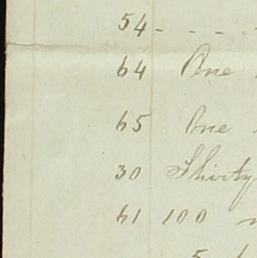 54 - - - -
64 One
65 One
30 Thirty
61 100
5